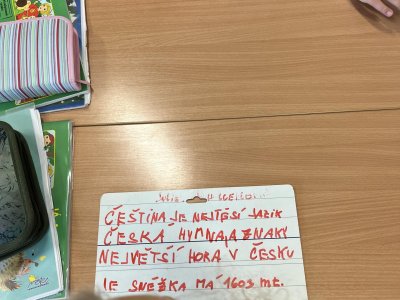 ČEŠTINA JE NEJTĚŠÍ JAZIK
ČESKÁ HYMNA, A ZNAKY
NEJVĚTŠÍ HORA V ČESKU
JE SNĚŽKA MÁ 1603 mt.